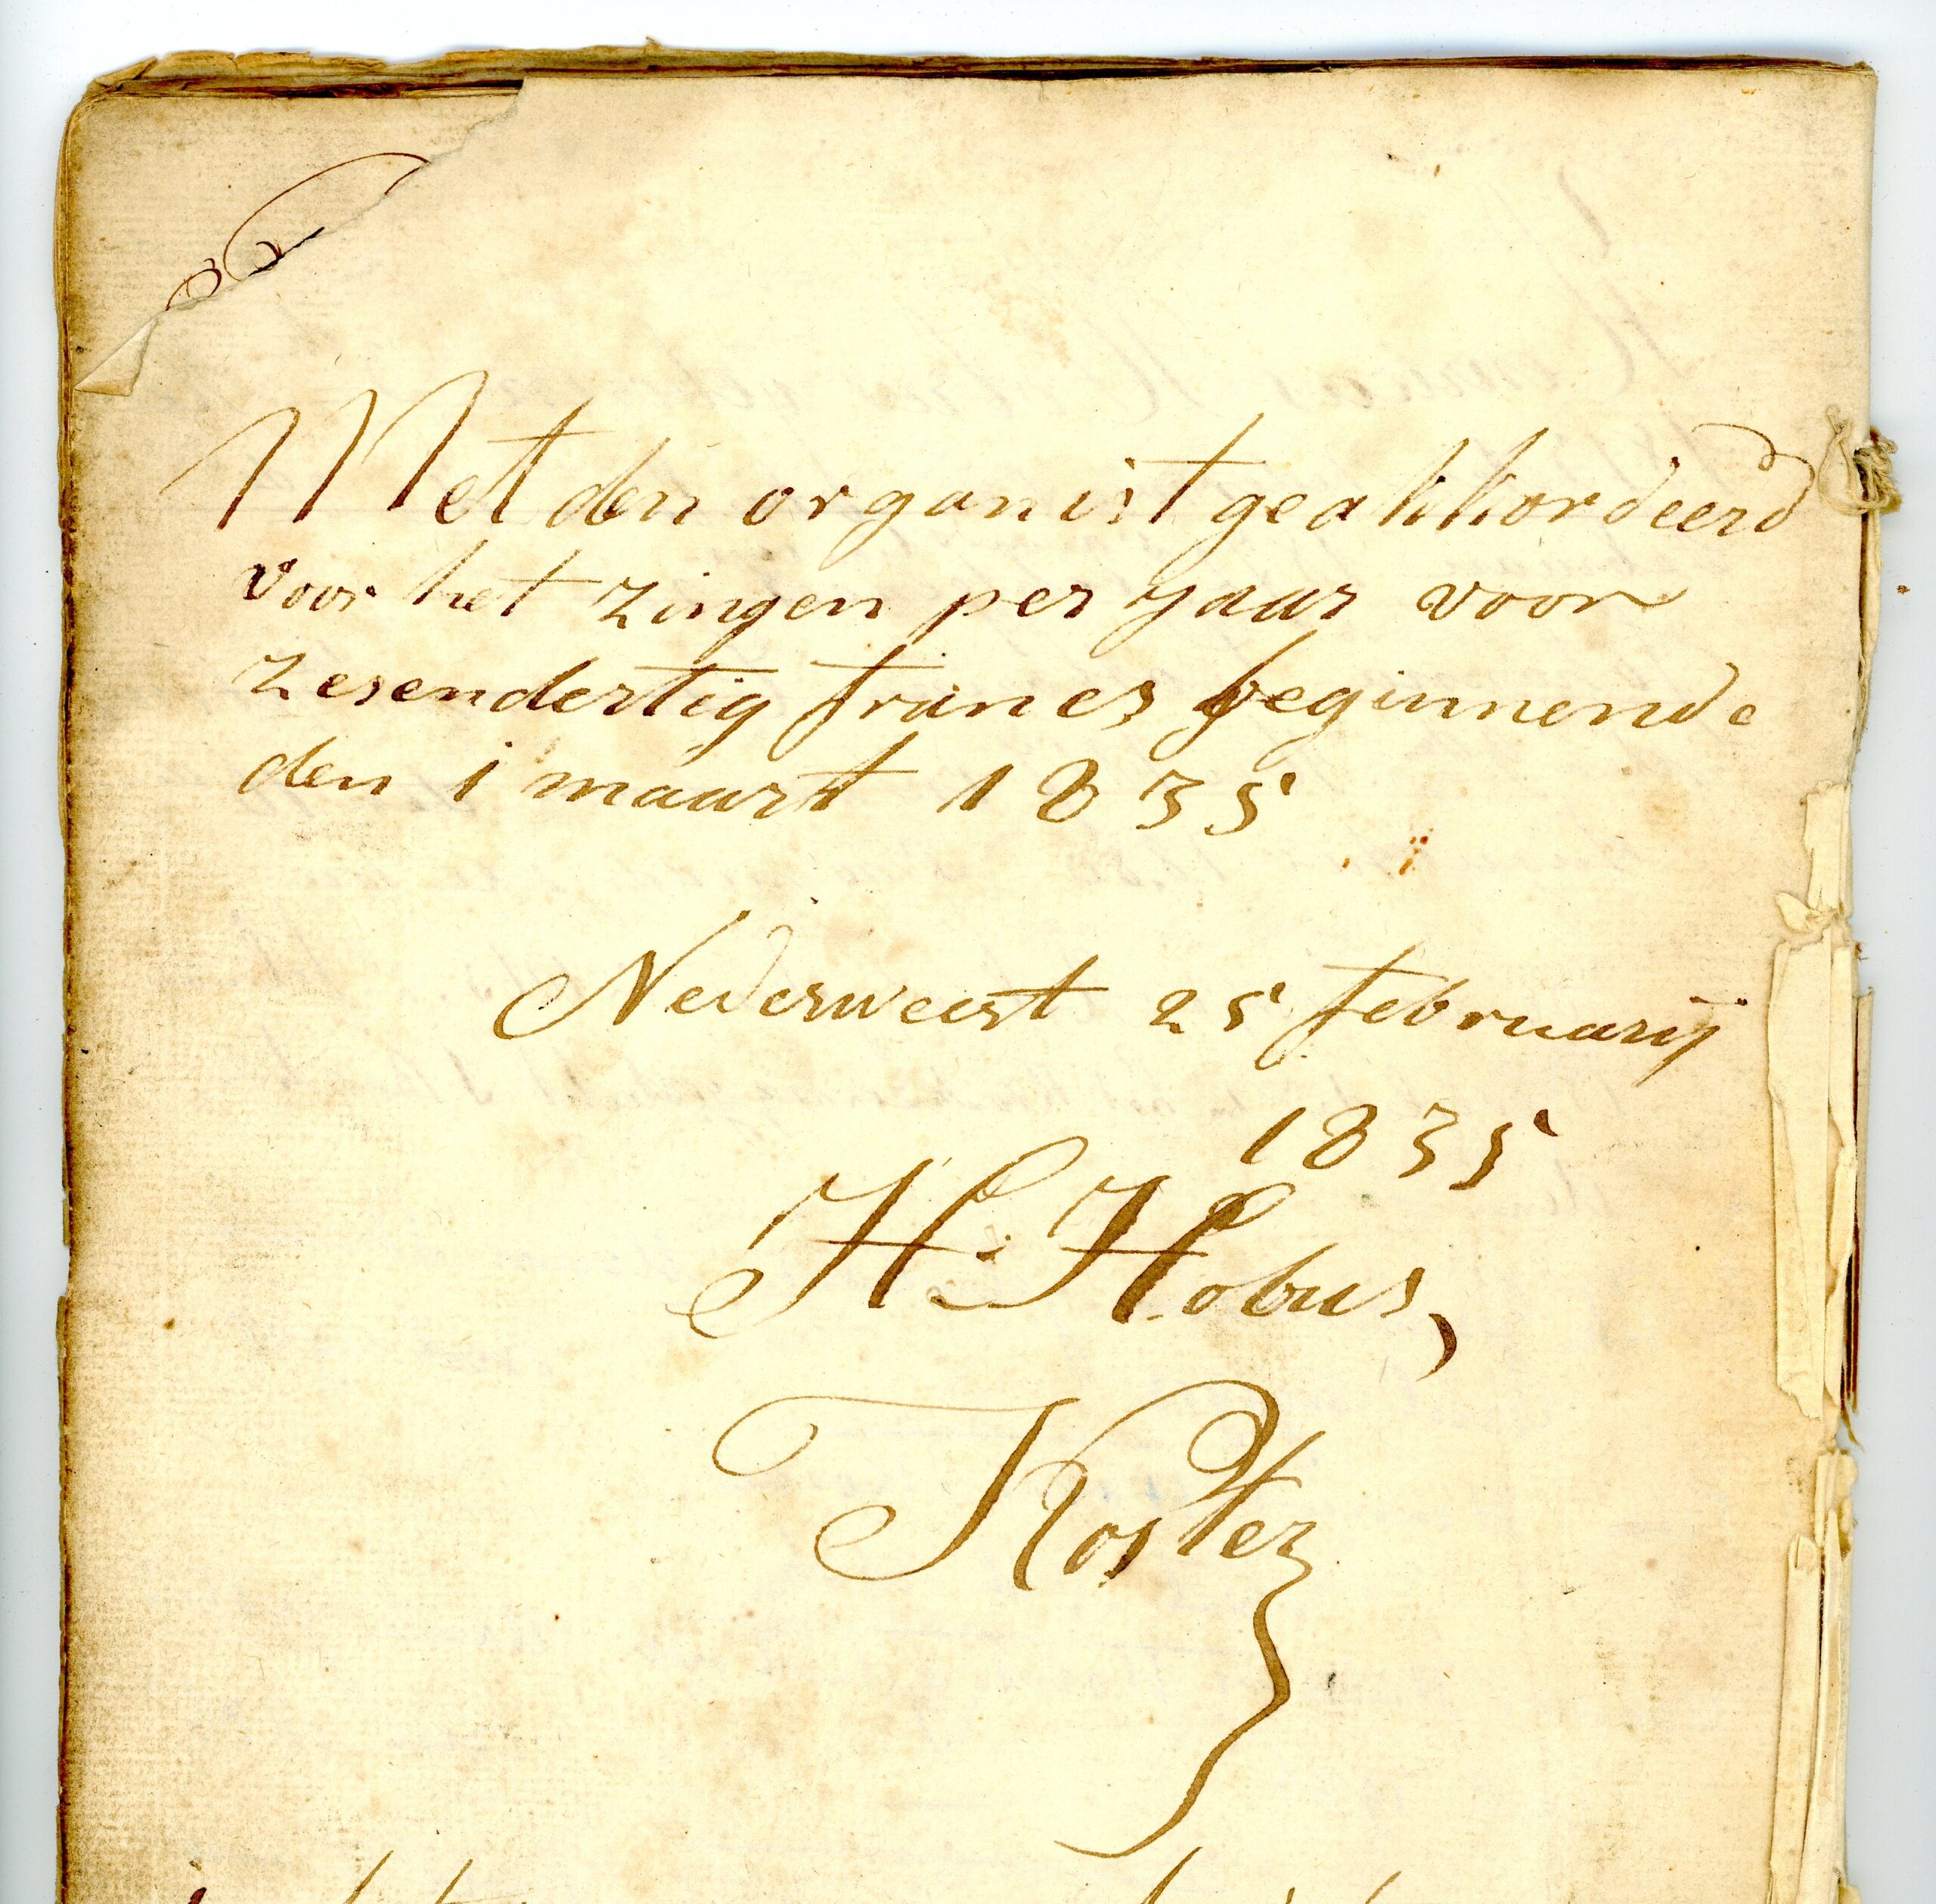 Met den organist geakkordeerd
voor het zingen per jaar voor
zesendertig francs beginnende
den 1 maart 1835
Nederweert 25 februarij
1835
H. Hobus,
Koster